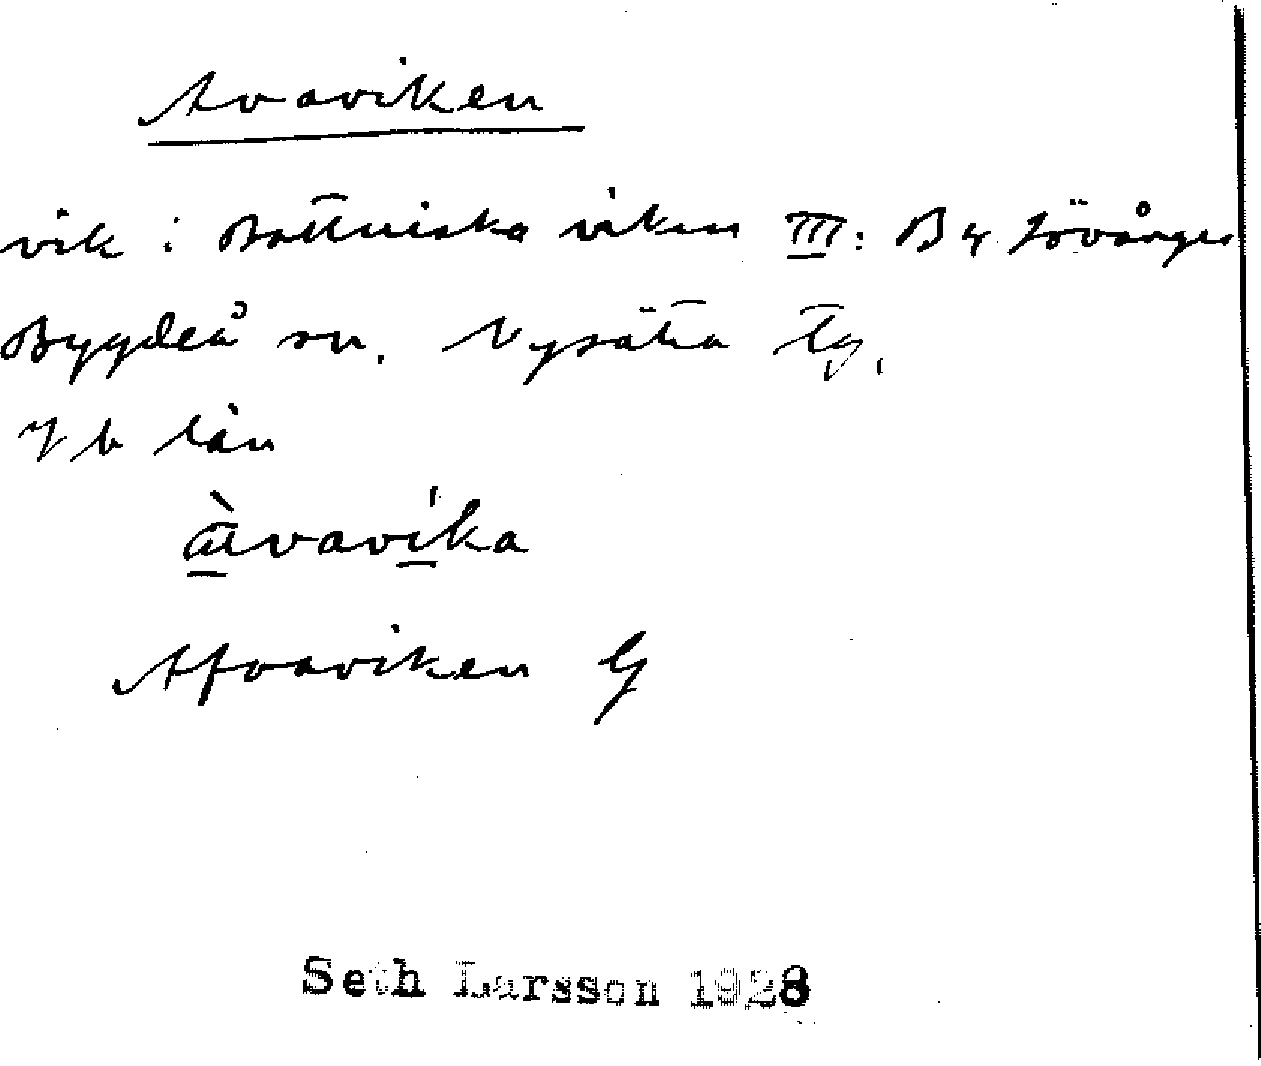 Avaviken
vik i Bottniska viken III: B4 Lövånger
Bygdeå sn. Nysätra tg.
Vb län
àvavíka
Afvaviken G
Seth Larsson 1928